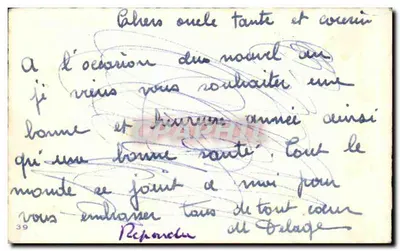 Chers oncle tante et cousin
A l'occasion du nouvel an
je viens vous souhaiter une
bonne et heureuse année ainsi
qu'une bonne santé. Tout le
monde se joint a moi pour
vous embrasser tous de tout cœur
Répondu M Delage
39